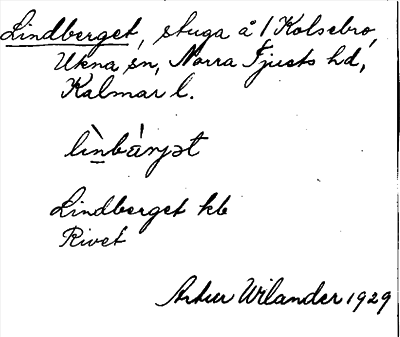 Lindberget, stuga å 1 Kolsebro,
Ukna sn, Norra Tjusts hd,
Kalmar l.
lìnbárjət
Lindberget kb
Rivet
Artur Wilander 1929